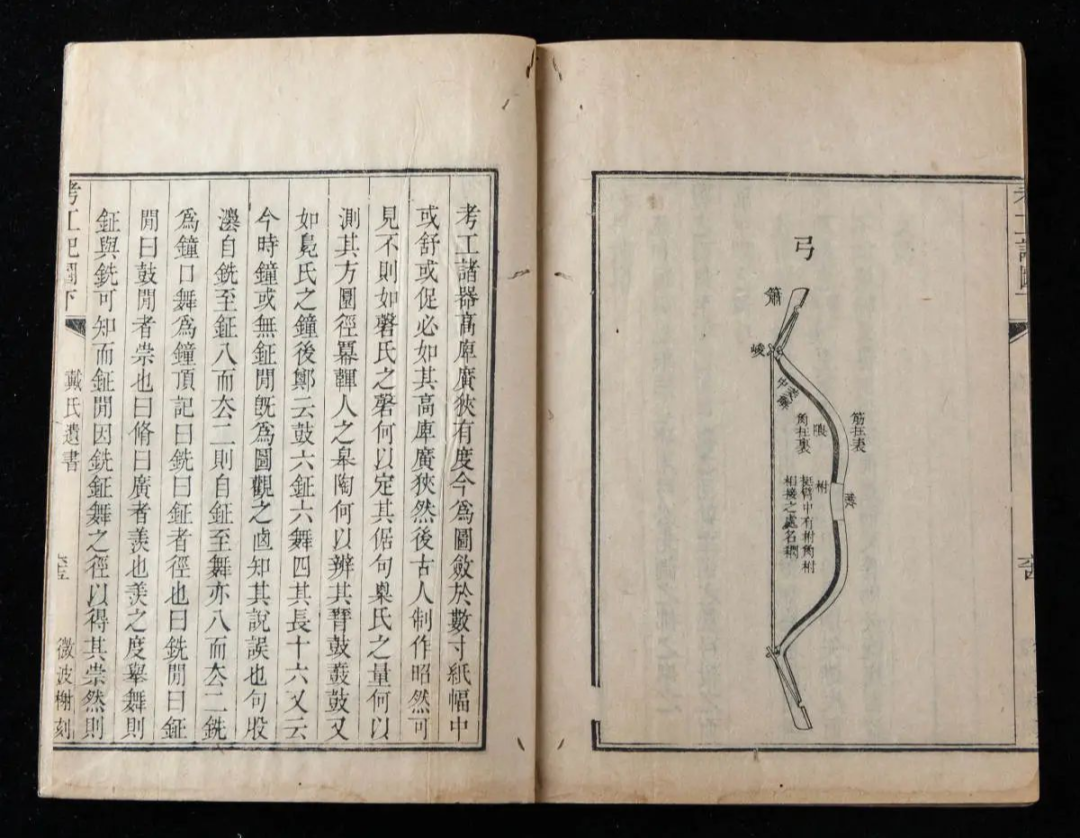 弓
簫
峻
筋在表
隈
角在裏
柎
挺臂中有柎角柎
相接之處名
考工諸器高庳廣狹有度今爲圖斂於數寸紙幅中
或舒或促必如其高庳廣狹然後古人制作昭然可
見不則如磬氏之磬何以定其倨句㮚氏之量何以
測其方圜徑冪韗人之皋陶何以辨其晉鼓鼖鼓又
如鳧氏之鐘後鄭云鼓六鉦六舞四其長十六又云
今時鐘或無鉦閒旣爲圖觀之直知其說誤也句股
灋自銑至鉦八而厺二則自鉦至舞亦八而厺二銑
爲鐘口舞爲鐘頂記曰銑曰鉦者徑也曰銑閒曰鉦
閒曰鼓閒者崇也曰脩曰廣者羨也羨之度舉舞則
鉦與銑可知而鉦閒因銑鉦舞之徑以得其崇然則
考工記圖下
戴氏遺書
六五
微波榭刻